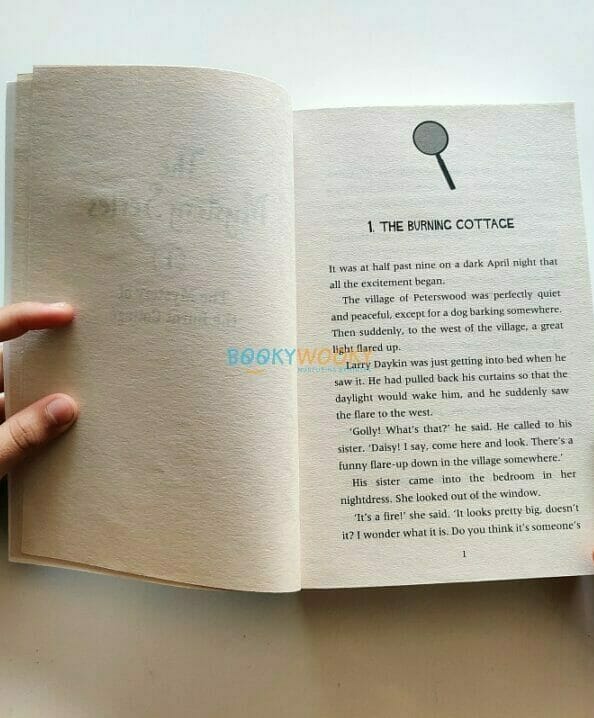 1. THE BURNING COTTAGE
It was at half past nine on a dark April night that
all the excitement began.
The village of Peterswood was perfectly quiet
and peaceful, except for a dog barking somewhere.
Then suddenly, to the west of the village, a great
light flared up.
BOOKYWOOKY
Larry Daykin was just getting into bed when he
saw it. He had pulled back his curtains so that the
daylight would wake him, and he suddenly saw
the flare to the west.
‘Golly! What's that?’ he said. He called to his
sister. ‘Daisy! I say, come here and look. There's a
funny flare-up down in the village somewhere.’
His sister came into the bedroom in her
nightdress. She looked out of the window.
‘It's a fire!’ she said. ‘It looks pretty big, doesn't
it? I wonder what it is. Do you think it's someone's
1